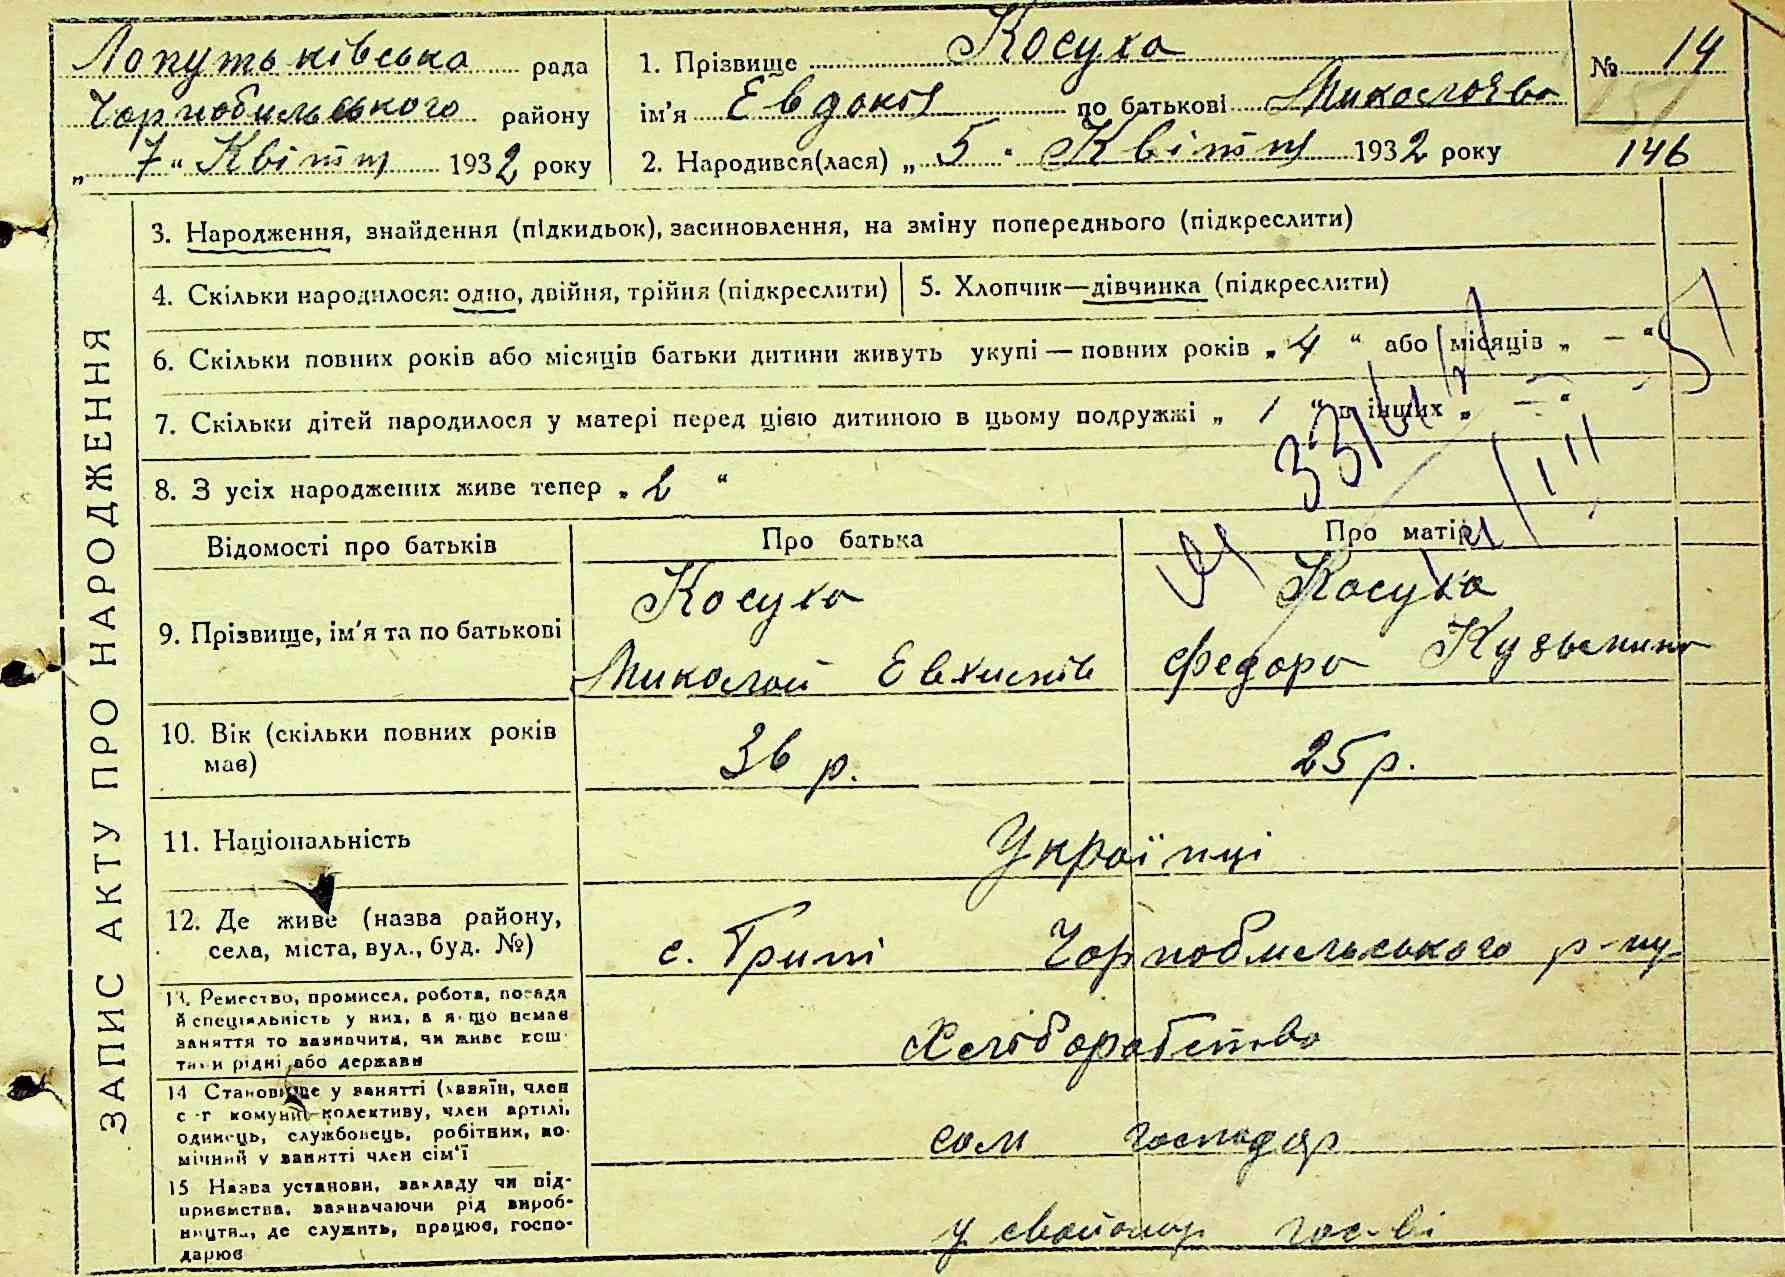 Лопутьківська рада
Чорнобильського району
„ 7 " Квітня 1932 року
1. Прізвище Косуха
ім'я Евдокія по батькові Миколаєва
2. Народився(лася) „ 5 " Квітня 1932 року
№ 14
146
ЗАПИС АКТУ ПРО НАРОДЖЕННЯ
3. Народження, знайдення (підкидьок), засиновлення, на зміну попереднього (підкреслити)
4. Скільки народилося: одно, двійня, трійня (підкреслити)
5. Хлопчик—дівчинка (підкреслити)
6. Скільки повних років або місяців батьки дитини живуть укупі — повних років „ 4 “ або місяців „ — “
7. Скільки дітей народилося у матері перед цією дитиною в цьому подружжі „ 1 “ в інших „ — “
8. З усіх народжених живе тепер „ 2 “
Відомості про батьків
Про батька
Про матір
9. Прізвище, ім'я та по батькові
Косуха
Миколай Евхимів
Косуха
Федора Кузьмина
10. Вік (скільки повних років
має)
36 р.
25 р.
11. Національність
Українці
12. Де живе (назва району,
села, міста, вул., буд. №)
с. Чорнобильського р-ну
13. Ремество, промисел, робота, посада
й спеціяльність у них, а якщо немає
заняття то зазначити, чи живе кош-
тами рідні або держави
Хліборобство
14 Становище у занятті (хазяїн, член
с-г комуни-колективу, член артілі,
одинець, службовець, робітник, по-
мічний у занятті член сім'ї
сам господар
15 Назва установи, закладу чи під-
приємства, зазначаючи рід вироб-
ництва, де служить, працює, госпо-
дарює
у свойому гос-ві